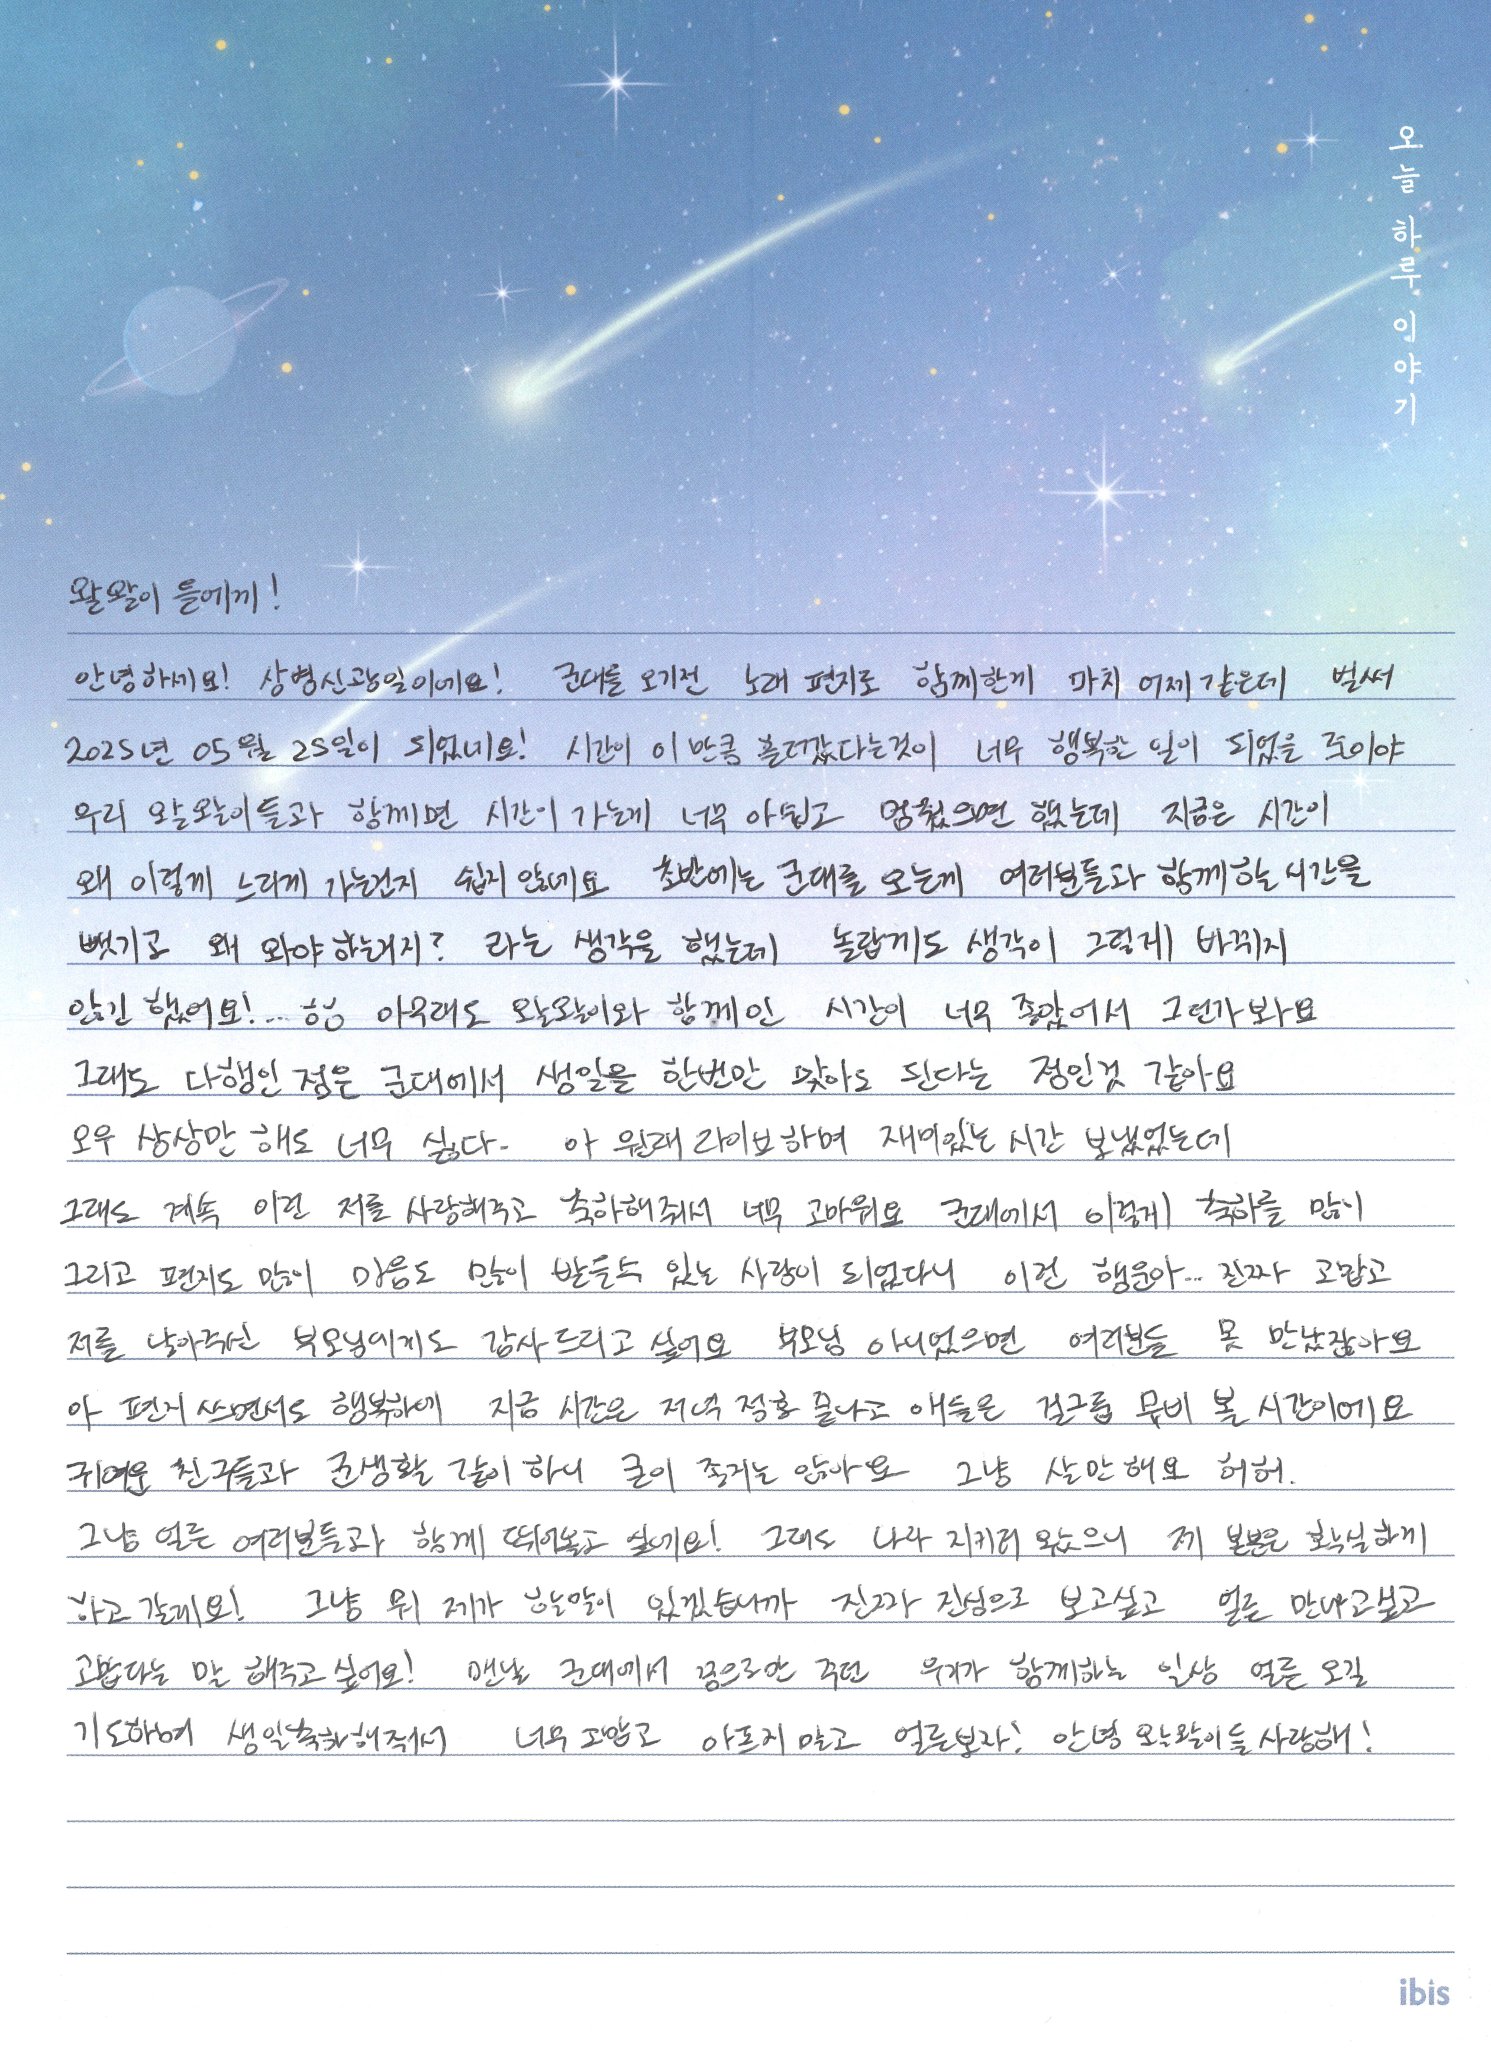 오늘 하루 이야기
왈왈이 들에게!
안녕하세요! 상병신광일이에요! 군대를 오기전 노래 편지로 함께한게 마치 어제 같은데 벌써
2025년 05월 25일이 되었네요! 시간이 이 만큼 흘러갔다는것이 너무 행복한 일이 되었을 줄이야
우리 왈왈이들과 함께면 시간이 가는게 너무 아쉽고 멈췄으면 했는데 지금은 시간이
왜 이렇게 느리게 가는건지 쉽지 않네요 초반에는 군대를 오는게 여러분들과 함께하는 시간을
뺏기고 왜 와야하는거지? 라는 생각을 했는데 놀랍게도 생각이 그렇게 바뀌지
않긴 했어요!... 힝 아무래도 왈왈이와 함께인 시간이 너무 좋았어서 그런가봐요
그래도 다행인 점은 군대에서 생일을 한번만 맞아도 된다는 점인것 같아요
오우 상상만 해도 너무 싫다- 아 원래 라이브하며 재미있는 시간 보냈었는데
그래도 계속 이런 저를 사랑해주고 축하해줘서 너무 고마워요 군대에서 이렇게 축하를 많이
그리고 편지도 많이 마음도 많이 받을수 있는 사람이 되었다니 이런 행운아... 진짜 고맙고
저를 낳아주신 부모님에게도 감사드리고 싶어요 부모님 아니었으면 여러분들 못 만났잖아요
아 편지 쓰면서도 행복하네 지금 시간은 저녁 점호 끝나고 애들은 걸그룹 무비 볼 시간이에요
귀여운 친구들과 군생활 같이 하니 군이 죽지는 않아요 그냥 살만해요 허허.
그냥 얼른 여러분들과 함께 뛰어놀고 싶네요! 그래도 나라 지키러 왔으니 제 본분은 확실하게
하고 갈게요! 그냥 뭐 제가 할말이 있겠습니까 진짜 진심으로 보고싶고 얼른 만나고싶고
고맙다는 말 해주고 싶어요! 맨날 군대에서 꿈으로만 꾸던 우리가 함께하는 일상 얼른 오길
기도하며 생일축하해줘서 너무 고맙고 아프지 말고 얼른보자! 안녕 왈왈이들 사랑해!
ibis